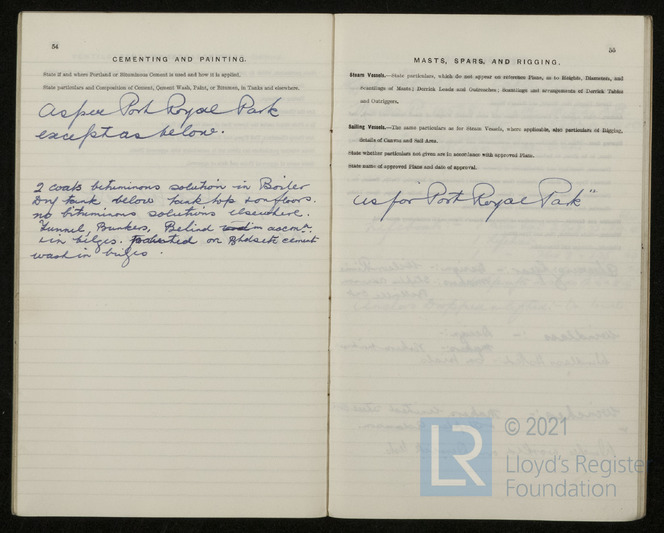 54
CEMENTING AND PAINTING.
State if and where Portland or Bituminous Cement is used and how it is applied.
State particulars and Composition of Cement, Cement Wash, Paint, or Bitumen, in Tanks and elsewhere.
As per Port Royal Park
except as below.
2 coats bituminous solution in Boiler
Dry tank below tank top & on floors.
no bituminous solutions elsewhere.
Funnel, Bunkers, Behind in accomn.
& in bilges. on Bhds & cement
wash in bilges.
55
MASTS, SPARS, AND RIGGING.
Steam Vessels.—State particulars, which do not appear on reference Plans, as to Heights, Diameters, and
Scantlings of Masts; Derrick Loads and Outreaches; Scantlings and arrangements of Derrick Tables
and Outriggers.
Sailing Vessels.—The same particulars as for Steam Vessels, where applicable, also particulars of Rigging,
details of Canvas and Sail Area.
State whether particulars not given are in accordance with approved Plans.
State name of approved Plans and date of approval.
as for "Port Royal Park"
LR
© 2021
Lloyd's Register
Foundation